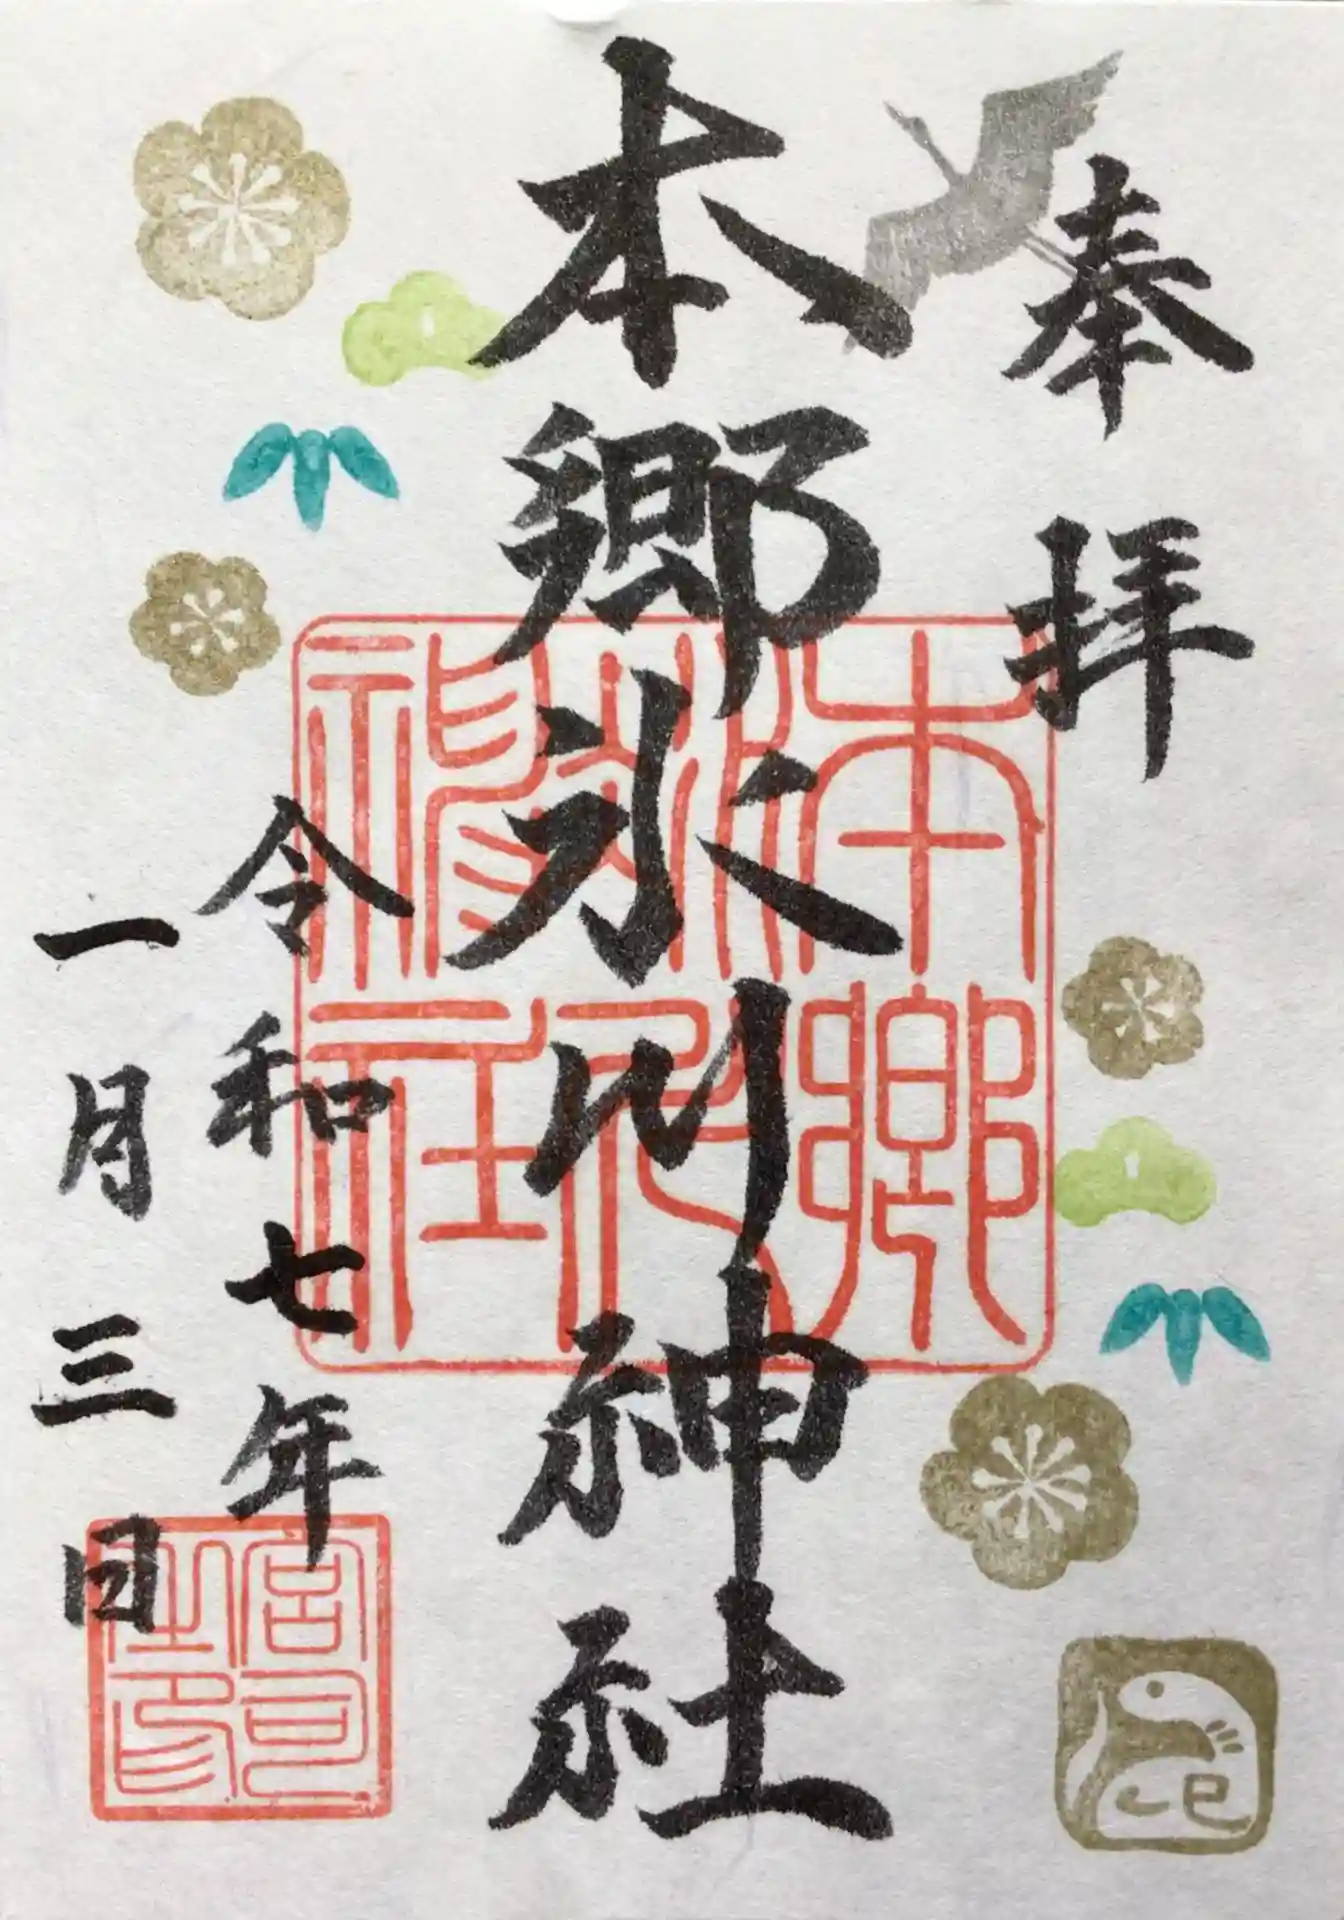 奉拝
本郷氷川神社
令和七年
一月三日
本郷
氷川
神社
宮司之印
巳